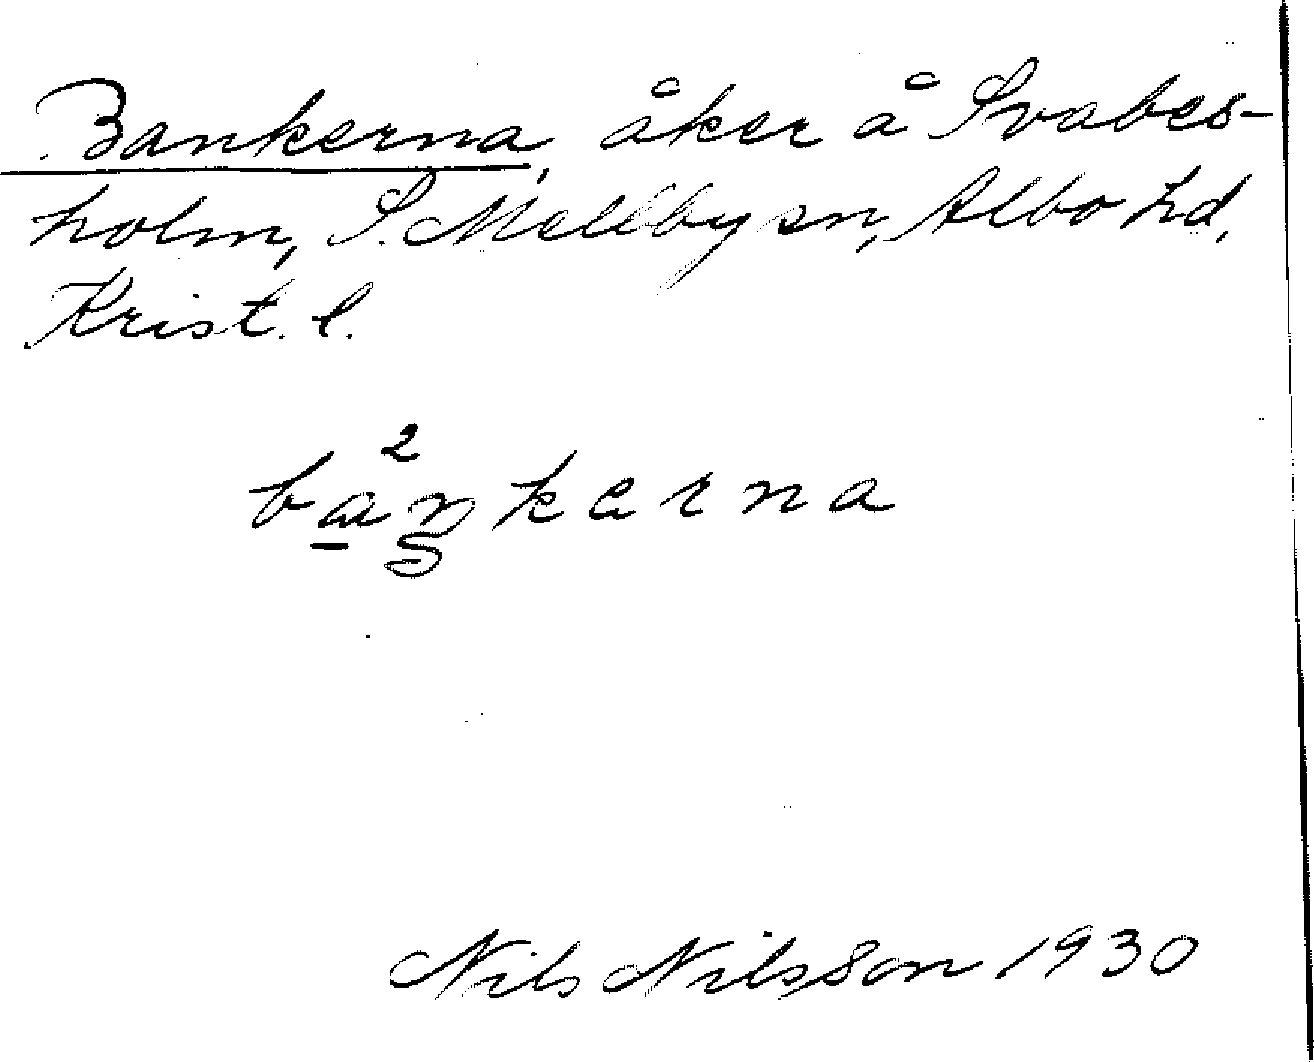 Bankerna, åker å Svabes-
holm, S. Mellby sn, Albo hd,
Krist. l.
2
bankerna
Nils Nilsson 1930